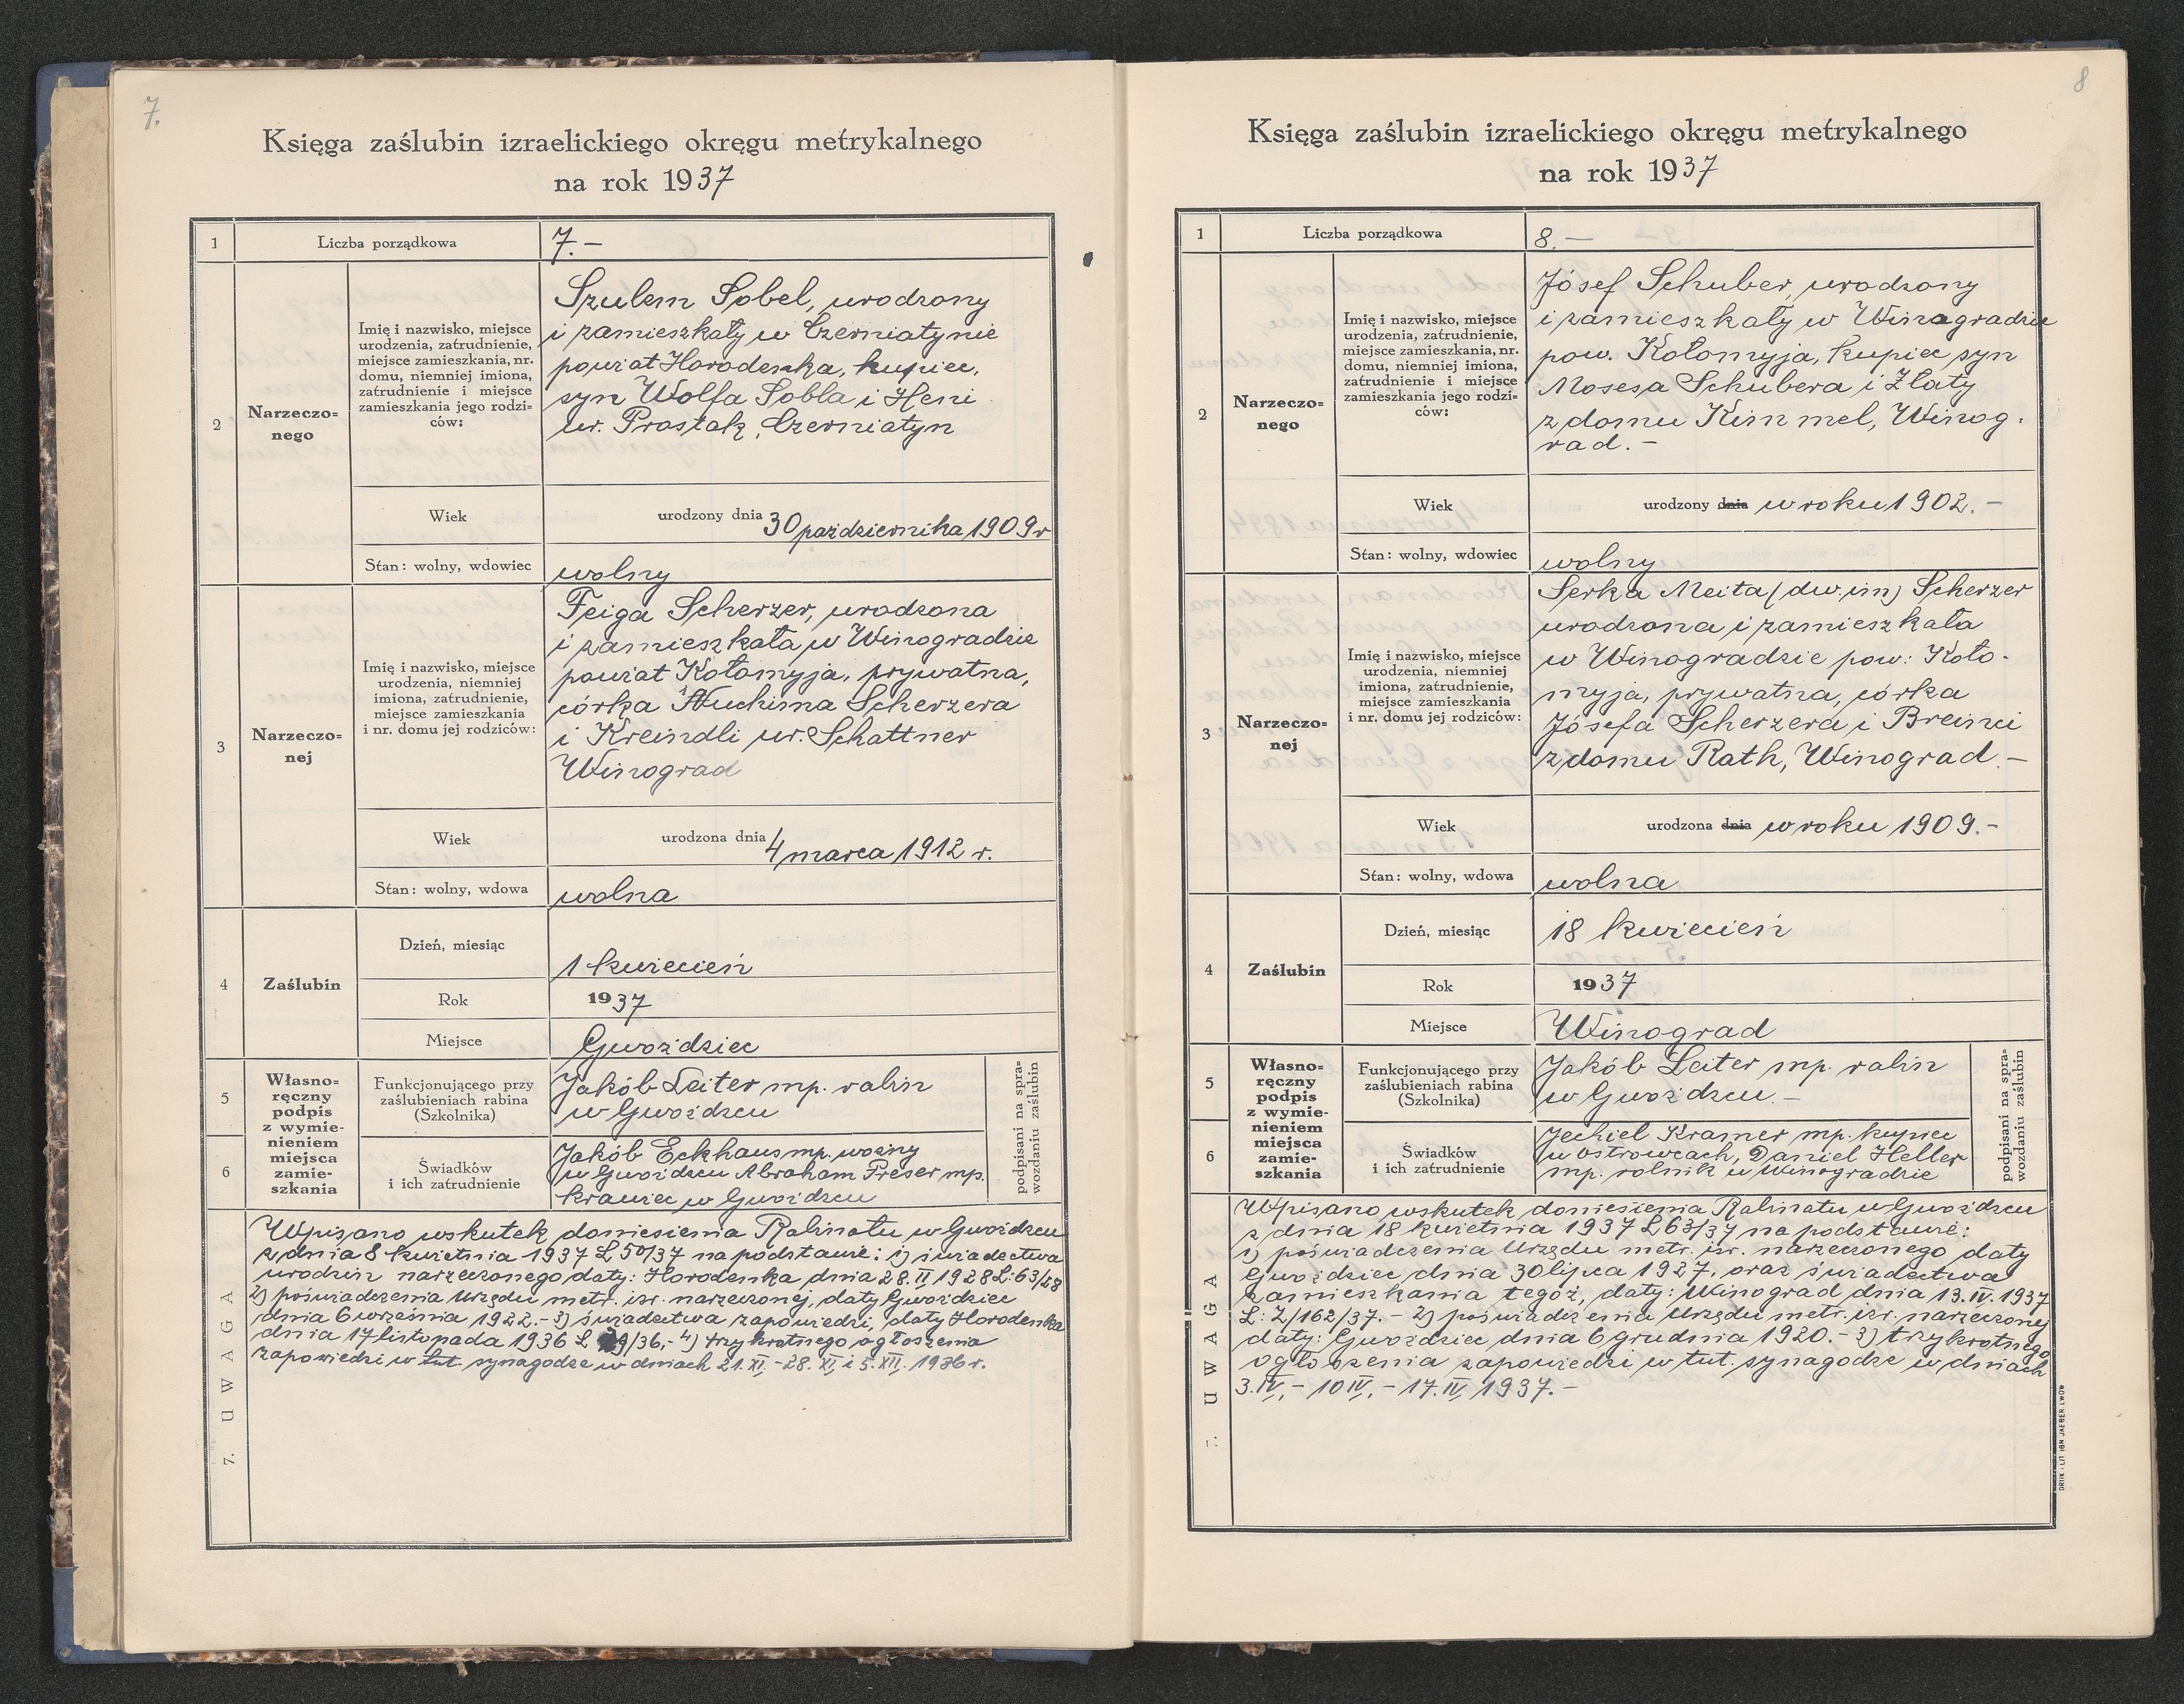 7.
Księga zaślubin izraelickiego okręgu metrykalnego
na rok 1937
1
Liczba porządkowa
7.-
2
Narzeczo=
nego
Imię i nazwisko, miejsce
urodzenia, zatrudnienie,
miejsce zamieszkania, nr.
domu, niemniej imiona,
zatrudnienie i miejsce
zamieszkania jego rodzi=
ców:
Szulem Sobel, urodzony
i zamieszkały w Czerniatynie
powiat Horodenka, kupiec,
syn Wolfa Sobla i Heni
ur. Prostak, Czerniatyn
Wiek
urodzony dnia 30 października 1909 r
Stan: wolny, wdowiec
wolny
3
Narzeczo=
nej
Imię i nazwisko, miejsce
urodzenia, niemniej
imiona, zatrudnienie,
miejsce zamieszkania
i nr. domu jej rodziców:
Feiga Scherzer, urodzona
i zamieszkała w Winogradzie
powiat Kołomyja, prywatna,
córka Nuchima Scherzera
i Kreindli ur. Schattner
Winograd
Wiek
urodzona dnia 4 marca 1912 r.
Stan: wolny, wdowa
wolna
4
Zaślubin
Dzień, miesiąc
1 kwiecień
Rok
1937
Miejsce
Gwoździec
5
6
Własno=
ręczny
podpis
z wymie-
nieniem
miejsca
zamie-
szkania
Funkcjonującego przy
zaślubieniach rabina
(Szkolnika)
Jakób Leiter mp. rabin
w Gwoźdzcu
Świadków
i ich zatrudnienie
Jakób Eckhaus mp. woźny
w Gwoźdzcu Abraham Preser mp.
krawiec w Gwoźdzcu
podpisani na spra-
wozdaniu zaślubin
7. UWAGA
Wpisano wskutek doniesienia Rabinatu w Gwoźdzcu
z dnia 8 kwietnia 1937 L 50/37 na podstawie: 1) świadectwa
urodzin narzeczonego daty: Horodenka dnia 28.II 1928 L: 63/28
2) poświadczenia Urzędu metr. izr. narzeczonej, daty Gwoździec
dnia 6 września 1922.- 3) świadectwa zapowiedzi, daty Horodenka
dnia 17 listopada 1936 L 9/36,- 4) trzykrotnego ogłoszenia
zapowiedzi w tut. synagodze w dniach 21.XI,-28.XI, i 5.XII. 1936 r.
8
Księga zaślubin izraelickiego okręgu metrykalnego
na rok 1937
1
Liczba porządkowa
8.-
2
Narzeczo=
nego
Imię i nazwisko, miejsce
urodzenia, zatrudnienie,
miejsce zamieszkania, nr.
domu, niemniej imiona,
zatrudnienie i miejsce
zamieszkania jego rodzi=
ców:
Józef Schuber, urodzony
i zamieszkały w Winogradzie
pow. Kołomyja, kupiec syn
Mosesa Schubera i Złaty
z domu Kimmel, Winog.
rad.-
Wiek
urodzony dnia w roku 1902.-
Stan: wolny, wdowiec
wolny
3
Narzeczo=
nej
Imię i nazwisko, miejsce
urodzenia, niemniej
imiona, zatrudnienie,
miejsce zamieszkania
i nr. domu jej rodziców:
Serka Meita (dw. im) Scherzer
urodzona i zamieszkała
w Winogradzie pow: Koło-
myja, prywatna, córka
Józefa Scherzera i Breinci
z domu Rath, Winograd.-
Wiek
urodzona dnia w roku 1909.-
Stan: wolny, wdowa
wolna
4
Zaślubin
Dzień, miesiąc
18 kwiecień
Rok
1937
Miejsce
Winograd
5
6
Własno=
ręczny
podpis
z wymie-
nieniem
miejsca
zamie-
szkania
Funkcjonującego przy
zaślubieniach rabina
(Szkolnika)
Jakób Leiter mp. rabin
w Gwoźdzcu.-
Świadków
i ich zatrudnienie
Jechiel Kramer mp. kupiec
w Ostrowcach, Daniel Heller
mp. rolnik w Winogradzie
podpisani na spra-
wozdaniu zaślubin
7. UWAGA
Wpisano wskutek doniesienia Rabinatu w Gwoźdzcu
z dnia 18 kwietnia 1937 L 63/37 na podstawie:
1) poświadczenia Urzędu metr. izr. narzeczonego daty
Gwoździec dnia 30 lipca 1927, oraz świadectwa
zamieszkania tegoż, daty: Winograd dnia 13.IV. 1937
L: 2/162/37.- 2) poświadczenia Urzędu metr. izr. narzeczonej
daty: Gwoździec dnia 6 grudnia 1920.- 3) trzykrotnego
ogłoszenia zapowiedzi w tut. synagodze w dniach
3.IV,- 10 IV,- 17.IV, 1937.-
DRUK i LIT IGN JAEGER LWÓW